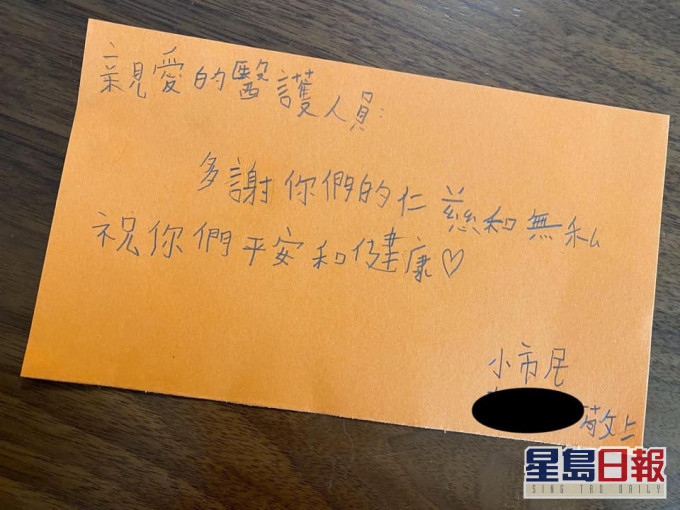 親愛的醫護人員:
多謝你們的仁慈和無私
祝你們平安和健康♡
小市民
敬上
星島日報
SING TAO DAILY